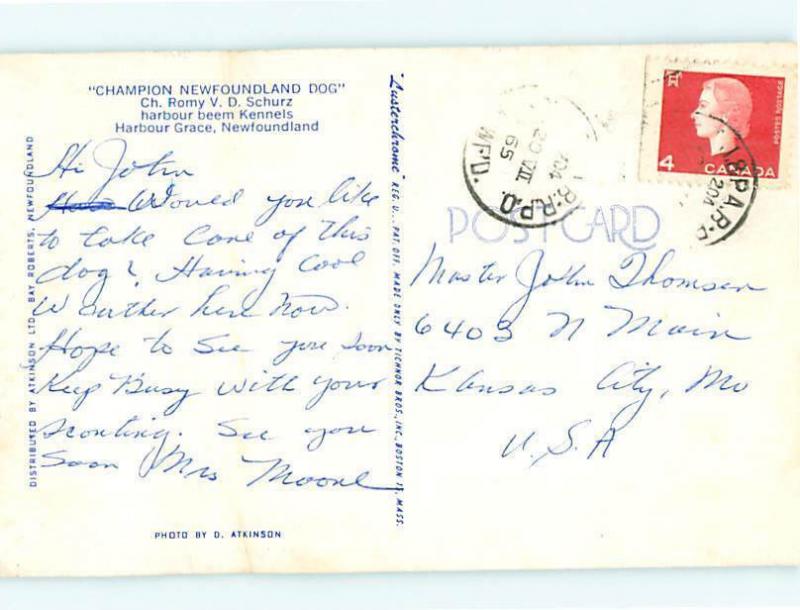 "CHAMPION NEWFOUNDLAND DOG"
Ch. Romy V. D. Schurz
harbour beem Kennels
Harbour Grace, Newfoundland
Hi John
Would you like
to take care of this
dog? Having cool
Weather here now.
Hope to see you soon
Keep Busy with your
scouting. See you
Soon Mrs Moore
PHOTO BY D. ATKINSON
DISTRIBUTED BY ATKINSON LTD. BAY ROBERTS, NEWFOUNDLAND
"Lusterchrome" REG. U. PAT. OFF. MADE ONLY BY TICHNOR BROS., INC., BOSTON 15, MASS.
POST CARD
NF'D.
20 VII
65
R.P.O.
4 CANADA
POSTES POSTAGE
Master John Thomsen
6403 N Main
Kansas City, Mo
U.S.A